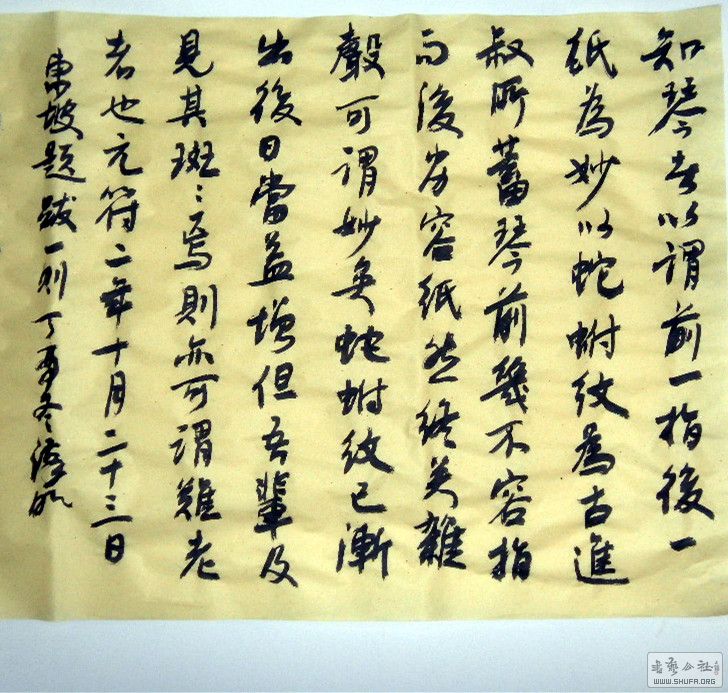 知琴者以謂前一指後一
紙為妙以蛇蚹紋為古進
叔所蓄琴前幾不容指
而後劣容紙然終美雜
聲可謂妙矣蛇蚹紋已漸
出後日當益增但吾輩及
見其斑〻焉則亦可謂難老
者也元符二年十月二十三日
東坡題跋一則丁酉冬
书艺公社
WWW.SHUFA.ORG